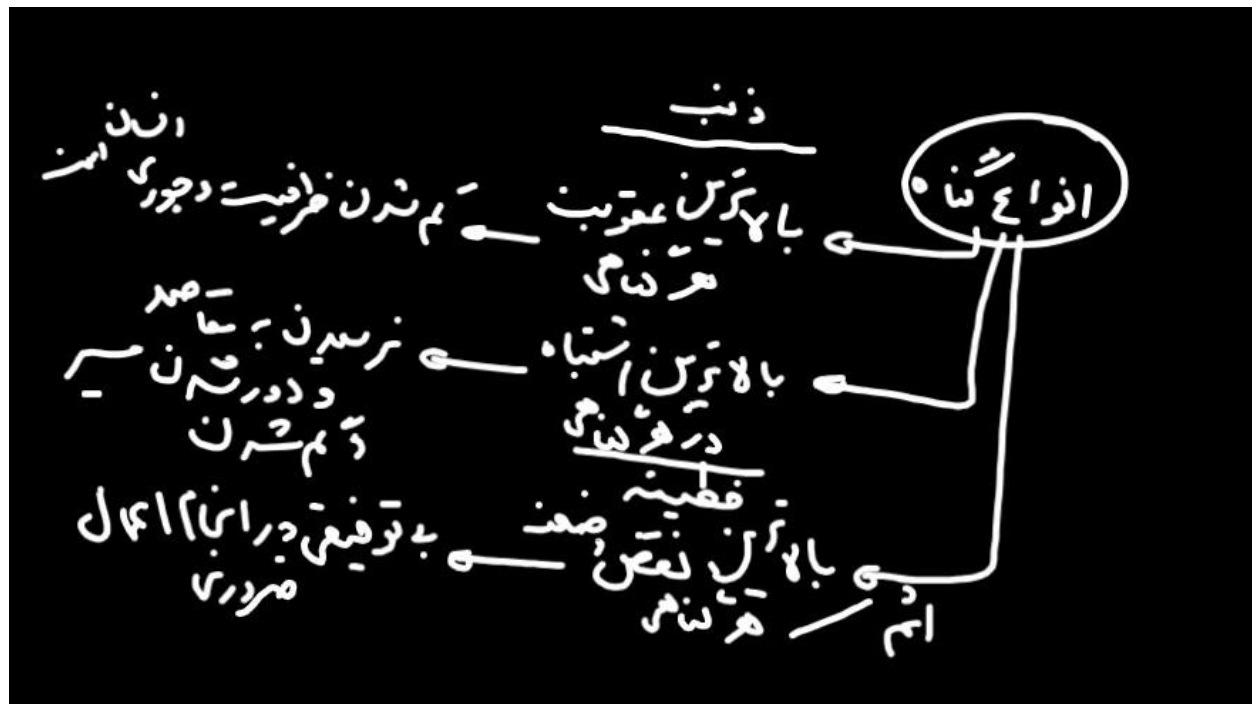 انواع گناه
ذنب
بالاترین عقوبت
هر گناهی
کم شدن ظرفیت وجودی
انسان است
بالاترین اشتباه
در هر گناهی
نرسیدن به مقاصد
و دور شدن مسیر
و گم شدن
خطیئه
بالاترین نقص و ضعف
هر گناهی
اثم
بی توفیقی در انجام اعمال
ضروری